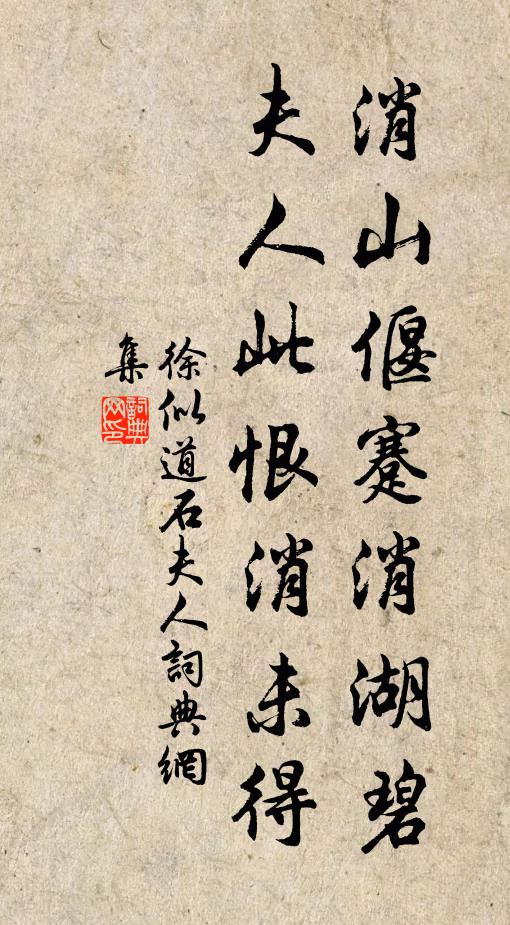 消山偃蹇消湖碧
夫人此恨消未得
徐似道石夫人詞典網
集
詞典網印